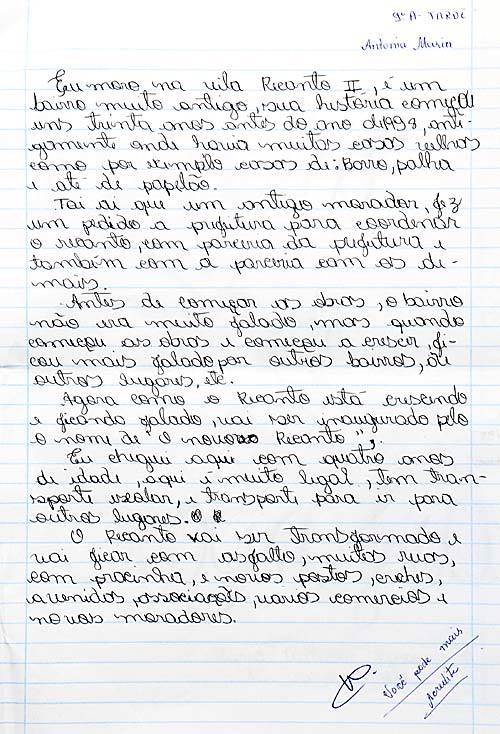 9º A - TARDE
Antonia Maria
Eu moro na vila Recanto II, é um
bairro muito antigo, sua história começou
uns trinta anos antes do ano de 1998, anti-
gamente onde havia muitas casas velhas
como por exemplo casas de: Barro, palha
e até de papelão.
Foi ai que um antigo morador, fez
um pedido a prefeitura para coordenar
o recanto, com parceria da prefeitura e
também com a parceria com os de-
mais.
Antes de começar as obras, o bairro
não era muito falado, mas quando
começou as obras e começou a crescer, fi-
cou mais falado por outros bairros, ou
outros lugares, etc.
Agora como o Recanto está crescendo
e ficando falado, vai ser inaugurado pelo
o nome de "O novo Recanto",
Eu cheguei aqui com quatro anos
de idade, aqui é muito legal, tem tran-
sporte escolar, e transporte para ir para
outros lugares.
O Recanto vai ser transformado e
vai ficar com asfalto, muitas ruas,
com pracinha, e novos postos, creches,
avenidas, associação, varios comercios e
novos moradores.
Você pode mais
Acredite